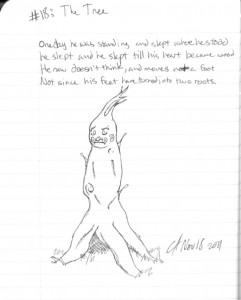 #18: The Tree
One day he was standing, and slept where he stood
he slept and he slept till his heart became wood
He now doesn't think, and moves not a foot
Not since his feet have turned into two roots.
Nov 18 2011